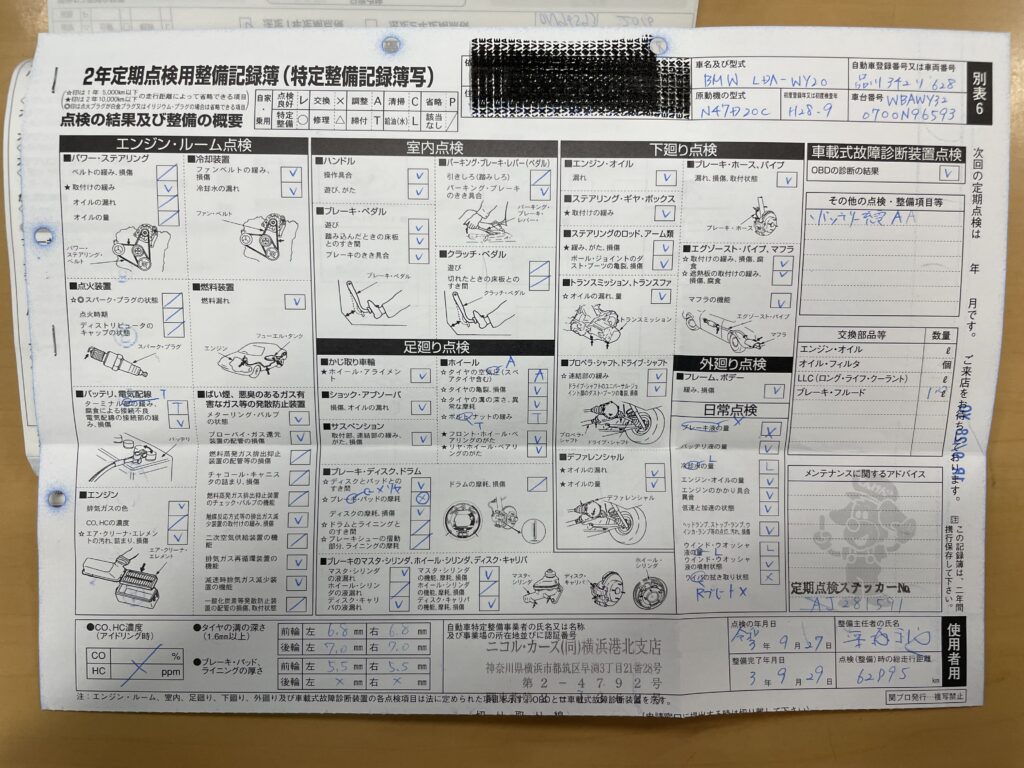 2年定期点検用整備記録簿(特定整備記録簿写)
☆印は 1年 5,000km以下
★印は 2年 10,000km以下 の走行距離によって省略できる項目
点検の結果及び整備の概要
自家乗用
点検良好 レ 交換 × 調整 A 清掃 C 省略 P
特定整備 ○ 修理 △ 締付 T 給油(水) L 該当なし /
車名及び型式
BMW LDA-WY20
自動車登録番号又は車両番号
品川 342 リ 628
原動機の型式
N47D20C
初度登録年又は初度検査年
H28-9
車台番号
WBAWY32
0700N96593
別表6
エンジン・ルーム点検
■パワー・ステアリング
ベルトの緩み、損傷
★取付けの緩み
オイルの漏れ
オイルの量
パワー・ステアリング・ベルト
■冷却装置
ファンベルトの緩み、損傷
冷却水の漏れ
ファン・ベルト
■点火装置
☆◎スパーク・プラグの状態
点火時期
ディストリビュータのキャップの状態
スパーク・プラグ
■燃料装置
燃料漏れ
フューエル・タンク
エンジン
■バッテリ、電気配線
ターミナルの緩み、腐食による接続不良
電気配線の接続部の緩み、損傷
バッテリ
■ばい煙、悪臭のあるガス有害なガス等の発散防止装置
メターリング・バルブの状態
ブローバイ・ガス還元装置の配管の損傷
燃料蒸発ガス排出抑止装置の配管等の損傷
チャコール・キャニスタの詰まり、損傷
燃料蒸発ガス排出抑止装置のチェック・バルブの機能
触媒反応方式等の排出ガス減少装置の取付けの緩み、損傷
二次空気供給装置の機能
排気ガス再循環装置の機能
減速時排気ガス減少装置の機能
一酸化炭素等発散防止装置の配管の損傷、取付状態
■エンジン
排気ガスの色
CO、HCの濃度
☆エア・クリーナ・エレメントの汚れ、詰まり、損傷
エア・クリーナ・エレメント
室内点検
■ハンドル
操作具合
遊び、がた
■ブレーキ・ペダル
遊び
踏み込んだときの床板とのすき間
ブレーキのきき具合
ブレーキ・ペダル
■パーキング・ブレーキ・レバー(ペダル)
引きしろ(踏みしろ)
パーキング・ブレーキのきき具合
パーキング・ブレーキ・レバー
■クラッチ・ペダル
遊び
切れたときの床板とのすき間
クラッチ・ペダル
足廻り点検
■かじ取り車輪
★ホイール・アライメント
■ショック・アブソーバ
損傷、オイルの漏れ
■サスペンション
取付部、連結部の緩み、がた、損傷
■ホイール
A
☆タイヤの空気圧(スペアタイヤ含む) A
☆タイヤの亀裂、損傷
☆タイヤの溝の深さ、異常な摩耗
★ボルト・ナットの緩み T
★フロント・ホイール・ベアリングのがた
★リヤ・ホイール・ベアリングのがた
■ブレーキ・ディスク、ドラム
☆ディスクとパッドとのすき間
☆ブレーキ・パッドの摩耗
ディスクの摩耗、損傷
☆ドラムとライニングとのすき間
☆ブレーキシューの摺動部分、ライニングの摩耗
ドラムの摩耗、損傷
■ブレーキのマスタ・シリンダ、ホイール・シリンダ、ディスク・キャリパ
マスタ・シリンダの液漏れ
ホイール・シリンダの液漏れ
ディスク・キャリパの液漏れ
マスタ・シリンダの機能、摩耗、損傷
ホイール・シリンダの機能、摩耗、損傷
ディスク・キャリパの機能、摩耗、損傷
マスタ・シリンダ
ディスク・キャリパ
ホイール・シリンダ
下廻り点検
■エンジン・オイル
漏れ
■ステアリング・ギヤ・ボックス
★取付けの緩み
■ステアリングのロッド、アーム類
★緩み、がた、損傷
ボール・ジョイントのダスト・ブーツの亀裂、損傷
■トランスミッション、トランスファ
☆オイルの漏れ、量
トランスミッション
■プロペラ・シャフト、ドライブ・シャフト
★連結部の緩み
ドライブ・シャフトのユニバーサル・ジョイント部のダスト・ブーツの亀裂、損傷
プロペラ・シャフト
ドライブ・シャフト
■デファレンシャル
★オイルの漏れ
★オイルの量
デファレンシャル
■ブレーキ・ホース、パイプ
漏れ、損傷、取付状態
ブレーキ・ホース
■エグゾースト・パイプ、マフラ
☆取付けの緩み、損傷、腐食
☆遮熱板の取付けの緩み、損傷、腐食
マフラの機能
エグゾースト・パイプ
マフラ
外廻り点検
■フレーム、ボデー
緩み、損傷
日常点検
ブレーキ液の量 ×
バッテリ液の量
冷却水の量 L
エンジン・オイルの量
エンジンのかかり具合異音
低速と加速の状態
ヘッドランプ、ストップ・ランプ、ウインカ・ランプ等の点灯、汚れ、損傷
ウインド・ウォッシャ液の量 L
ウインド・ウォッシャ液の噴射状態
ワイパの拭き取り状態 ×
車載式故障診断装置点検
OBDの診断の結果
その他の点検・整備項目等
交換部品等 数量
エンジン・オイル ℓ
オイル・フィルタ 個
LLC(ロング・ライフ・クーラント) ℓ
ブレーキ・フルード ℓ
メンテナンスに関するアドバイス
定期点検ステッカー№
AJ281591
次回の定期点検は 年 月です。 ご来店をお待ちしております。
注 この記録簿は、二年間携行保存して下さい。
使用者用
●CO、HC濃度(アイドリング時)
CO %
HC ppm
●タイヤの溝の深さ(1.6mm以上)
前輪 左 6.8 mm 右 6.8 mm
後輪 左 7.0 mm 右 7.0 mm
●ブレーキ・パッド、ライニングの厚さ
前輪 左 5.5 mm 右 5.5 mm
後輪 左 × mm 右 × mm
自動車特定整備事業者の氏名又は名称及び事業場の所在地並びに認証番号
ニコル・カーズ(同)横浜港北支店
神奈川県横浜市都筑区早渕3丁目21番28号
第2-4792号
点検の年月日
令和 3 年 9 月 27 日
整備主任者の氏名
整備完了年月日
3 年 9 月 29 日
点検(整備)時の総走行距離
62095 km
注:エンジン・ルーム、室内、足廻り、下廻り、外廻り及び車載式故障診断装置の各点検項目は法に定められた項目を示す。
関ブロ発行・複写禁止
切り取り線